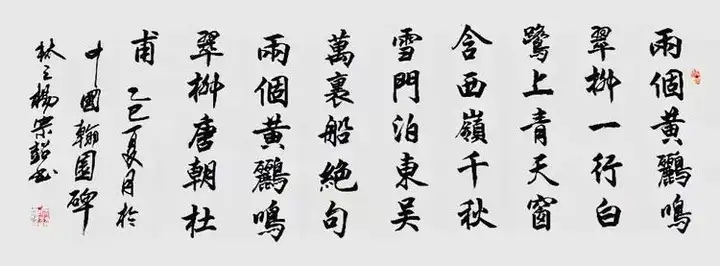 兩個黃鸝鳴
翠柳一行白
鷺上青天窗
含西嶺千秋
雪門泊東吳
萬裏船絕句
兩個黃鸝鳴
翠柳唐朝杜
甫 乙巳夏月於
中國翰園碑
林之楊崇超书